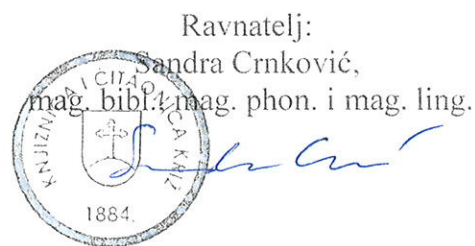 Ravnatelj:
Sandra Crnković,
mag. bibl., mag. phon. i mag. ling.
KNJIŽNICA I ČITAONICA KRIŽ
1884.